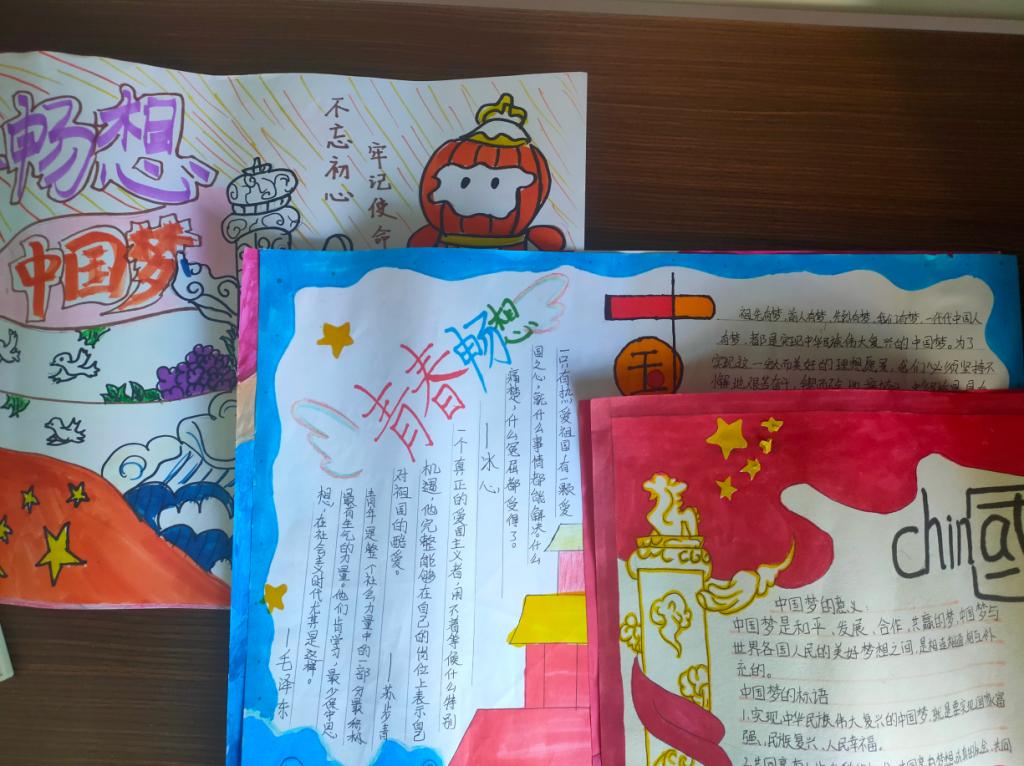 畅想
中国梦
不忘初心
牢记使命
青春畅想
一只有热爱祖国,有一颗爱
国之心,就什么事情都能解决,什么
痛楚,什么冤屈都受得了。
——冰心
一个真正的爱国主义者,用不着等候什么特别
机遇,他完整能够在自己的岗位上表示自己
对祖国的酷爱。
——苏步青
青年是整个社会力量中的一部分最积极
最有生气的力量。他们肯学习,最少保守思
想,在社会主义时代尤其是这样。
——毛泽东
祖先有梦,前人有梦,先烈有梦,我们有梦,一代代中国人
有梦,都是实现中华民族伟大复兴的中国梦。为了
实现这一and美好的理想愿景,我们必须坚持不
china国
中国梦的意义:
中国梦是和平、发展、合作、共赢的梦,中国梦与
世界各国人民的美好梦想之间,是相互相通相互补
充的。
中国梦的标语
1.实现中华民族伟大复兴的中国梦,就是要实现国家富
强、民族复兴、人民幸福。